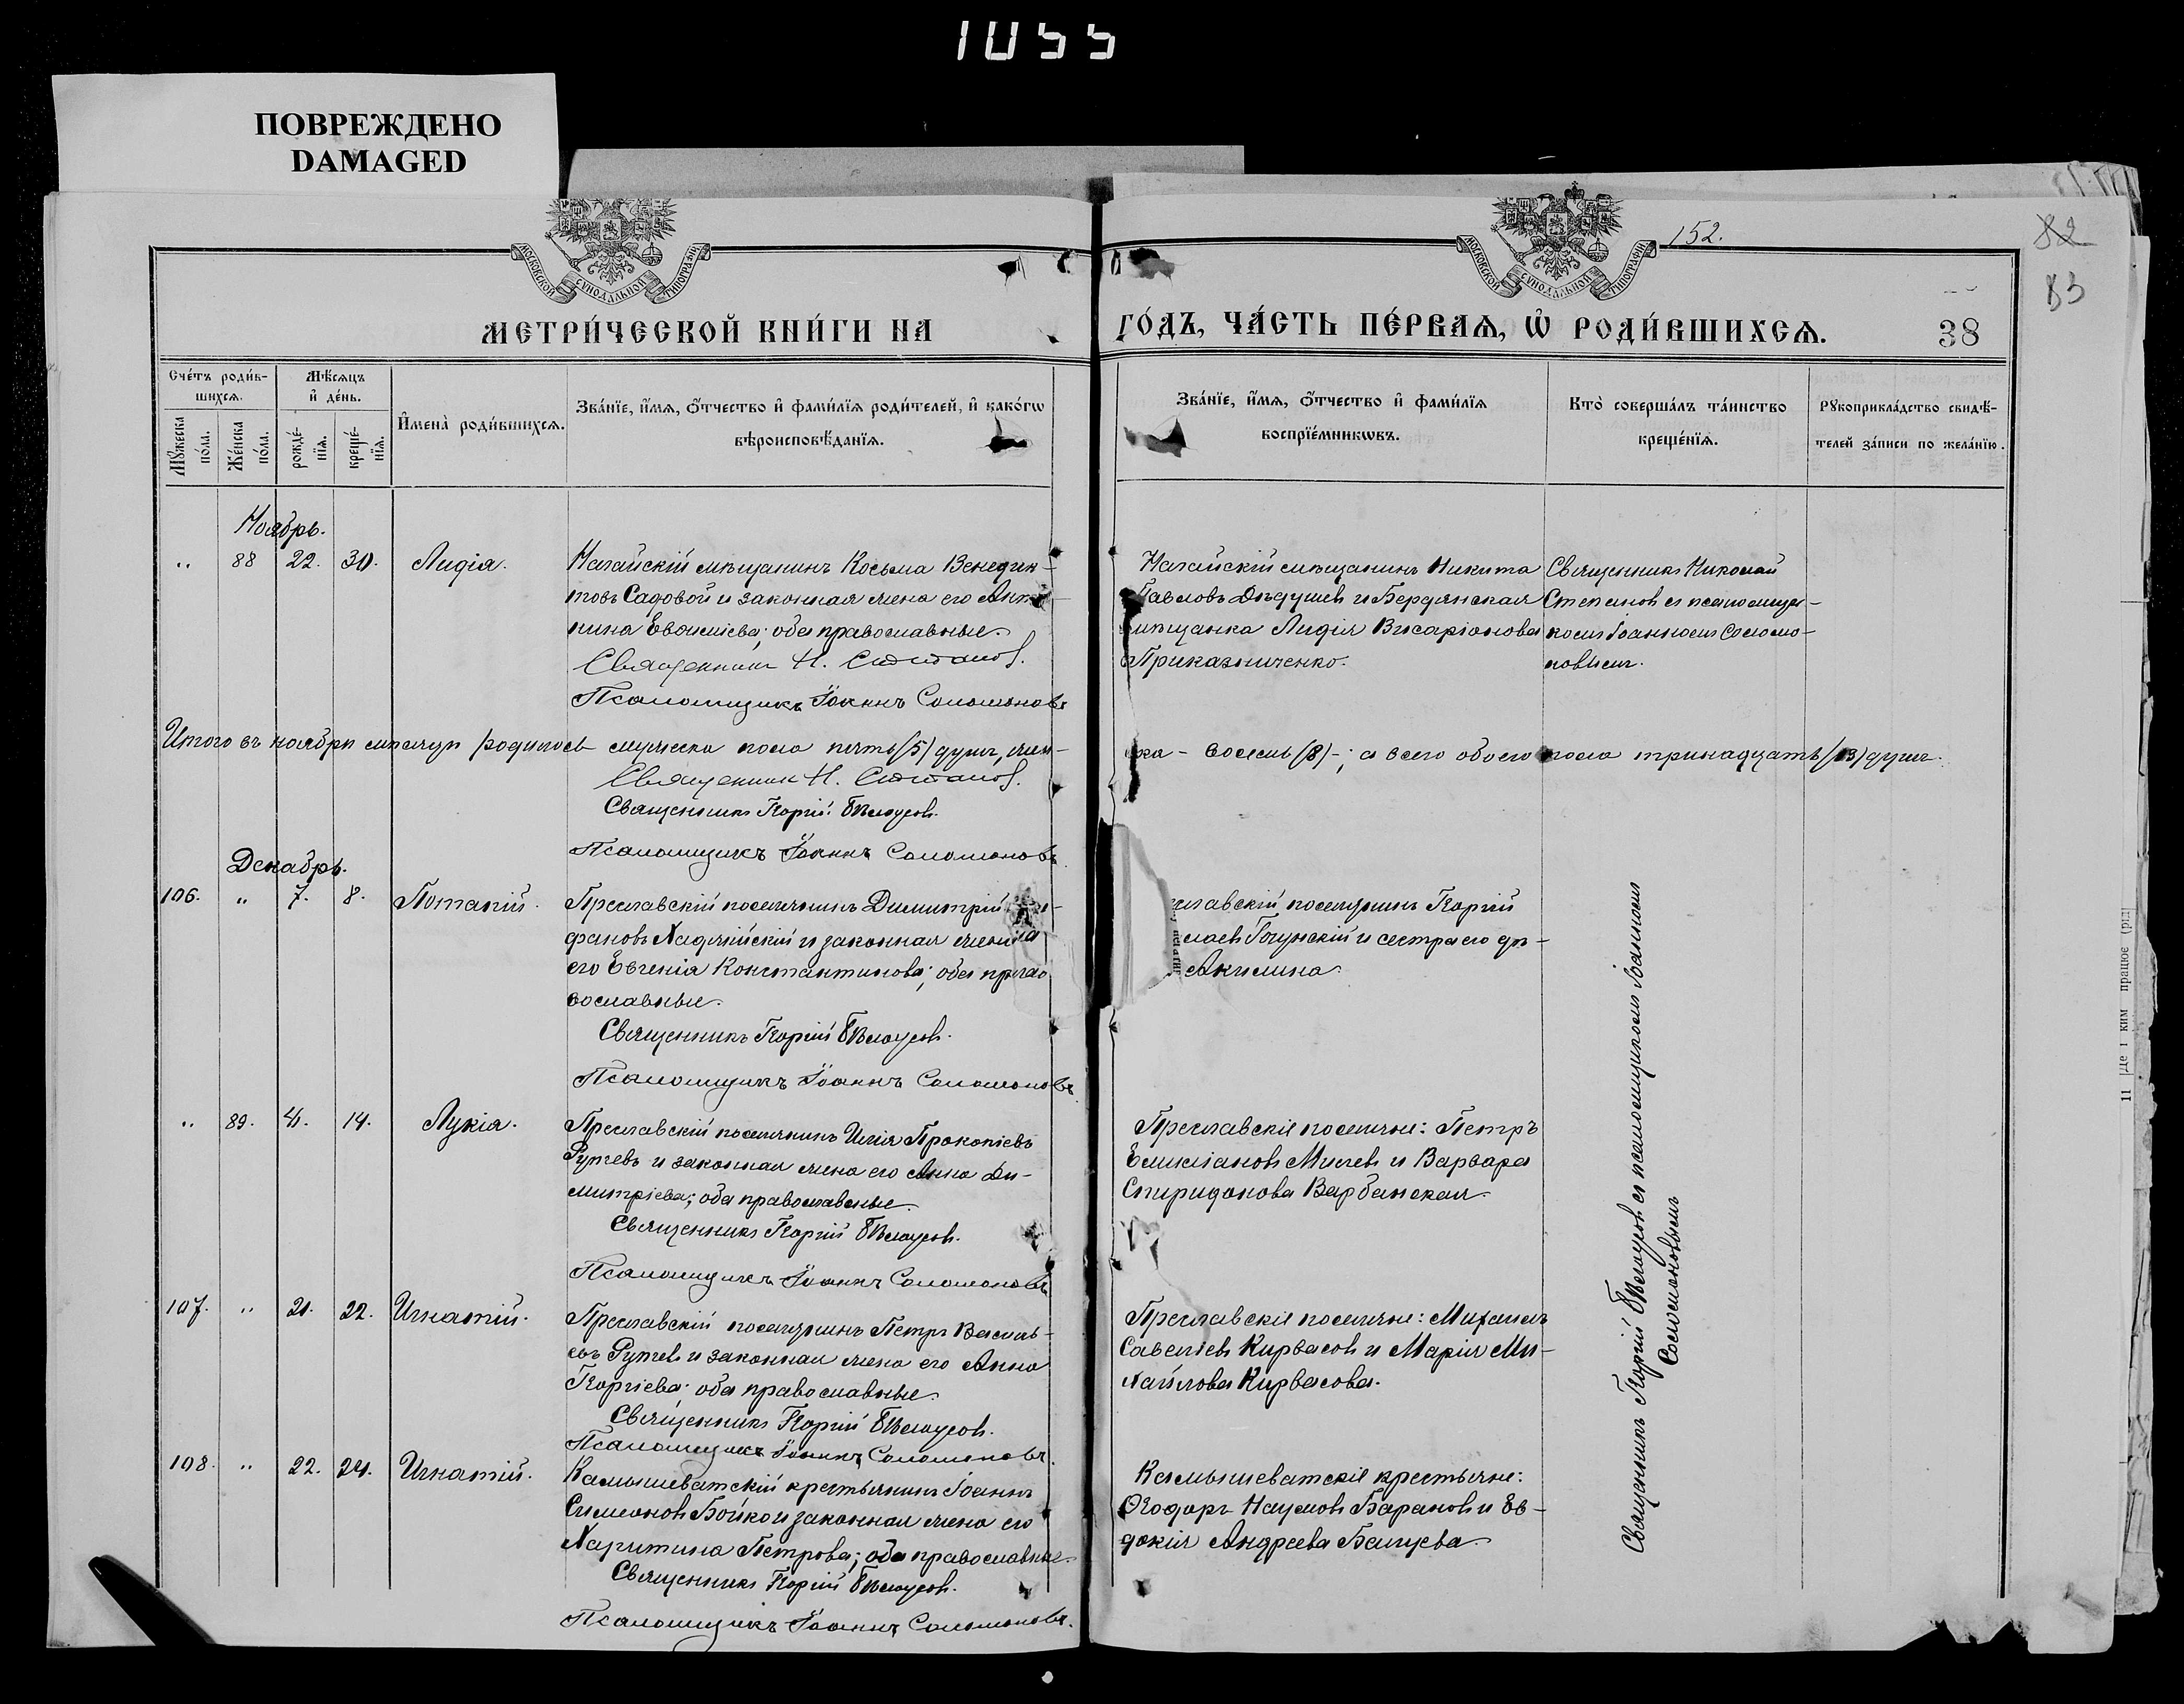 1055
ПОВРЕЖДЕНО
DAMAGED
МОСКОВСКОЙ СѴНОДАЛЬНОЙ ТИПОГРАФІИ
МОСКОВСКОЙ СѴНОДАЛЬНОЙ ТИПОГРАФІИ
152.
82
83
МЕТРИ́ЧЕСКОЙ КНИ́ГИ НА
ГО́ДЪ, ЧА́СТЬ ПЕ́РВАѦ, Ѡ҆ РОДИ́ВШИХСѦ.
38
Сче́тъ роди́в-
шихсѧ.
Мѣ́сѧцъ
и҆ де́нь.
Мꙋ́жеска по́ла.
Же́нска по́ла.
рожде́-
нїѧ.
креще́-
нїѧ.
И҆мена̀ роди́вшихсѧ.
Зва́нїе, и҆́мѧ, ѻ҆́тчество и҆ фами́лїѧ роди́телей, и҆ како́гѡ
вѣроисповѣ́данїѧ.
Зва́нїе, и҆́мѧ, ѻ҆́тчество и҆ фами́лїѧ
воспрїе́мникѡвъ.
Кто̀ соверша́лъ та́инство
креще́нїѧ.
Рꙋкоприкла́дство свидѣ́-
телей за́писи по жела́нїю.
Ноябрь.
" 88 22. 30. Лидія.
Ногайскій мѣщанинъ Косьма Венедик-
товъ Садовой и законная жена его Анто-
нина Евфиміева; оба православные.
Священникъ Н. Степановъ.
Псаломщикъ Іоаннъ Соломоновъ
Ногайскій мѣщанинъ Никита
Павловъ Дѣдушевъ и Бердянская
мѣщанка Лидія Висаріонова
Приказниченко.
Священникъ Николай
Степановъ съ псаломщи-
комъ Іоанномъ Соломо-
новымъ.
Итого въ ноябрѣ мѣсяцѣ родилось мужеска пола пять (5) душъ, жен-
ска - восемь (8) -; а всего обоего пола тринадцать (13) душъ.
Священникъ Н. Степановъ.
Священникъ Георгій Бѣлоусовъ.
Псаломщикъ Іоаннъ Соломоновъ.
Декабрь.
106. " 7. 8. Потапій.
Преславскій поселянинъ Димитрій
фановъ Хаджійскій и законная жена
его Евгенія Константинова; оба пра-
вославные.
Священникъ Георгій Бѣлоусовъ.
Псаломщикъ Іоаннъ Соломоновъ
славскій поселянинъ Георгій
лаевъ Гочунскій и сестра его дѣ-
Акилина.
" 89. 4. 14. Лукія.
Преславскій поселянинъ Илія Прокопіевъ
Рупчевъ и законная жена его Анна Ди-
митріева; оба православные.
Священникъ Георгій Бѣлоусовъ.
Псаломщикъ Іоаннъ Соломоновъ
Преславскіе поселяне: Петръ
Емиліановъ Милевъ и Варвара
Спиридонова Варбанская.
107. " 21. 22. Игнатій.
Преславскій поселянинъ Петръ Василь-
евъ Рупчевъ и законная жена его Анна
Георгіева; оба православные.
Священникъ Георгій Бѣлоусовъ.
Псаломщикъ Іоаннъ Соломоновъ.
Преславскіе поселяне: Михаилъ
Савеліевъ Кирвасовъ и Марія Ми-
хайлова Кирвасова.
108. " 22. 24. Игнатій.
Камышеватскій крестьянинъ Іоаннъ
Симеоновъ Бойко и законная жена его
Харитина Петрова; оба православные.
Священникъ Георгій Бѣлоусовъ.
Псаломщикъ Іоаннъ Соломоновъ.
Камышеватскіе крестьяне:
Ѳеодоръ Наумовъ Барановъ и Ев-
докія Андреева
Священникъ Георгій Бѣлоусовъ съ псаломщикомъ Іоанномъ
Соломоновымъ